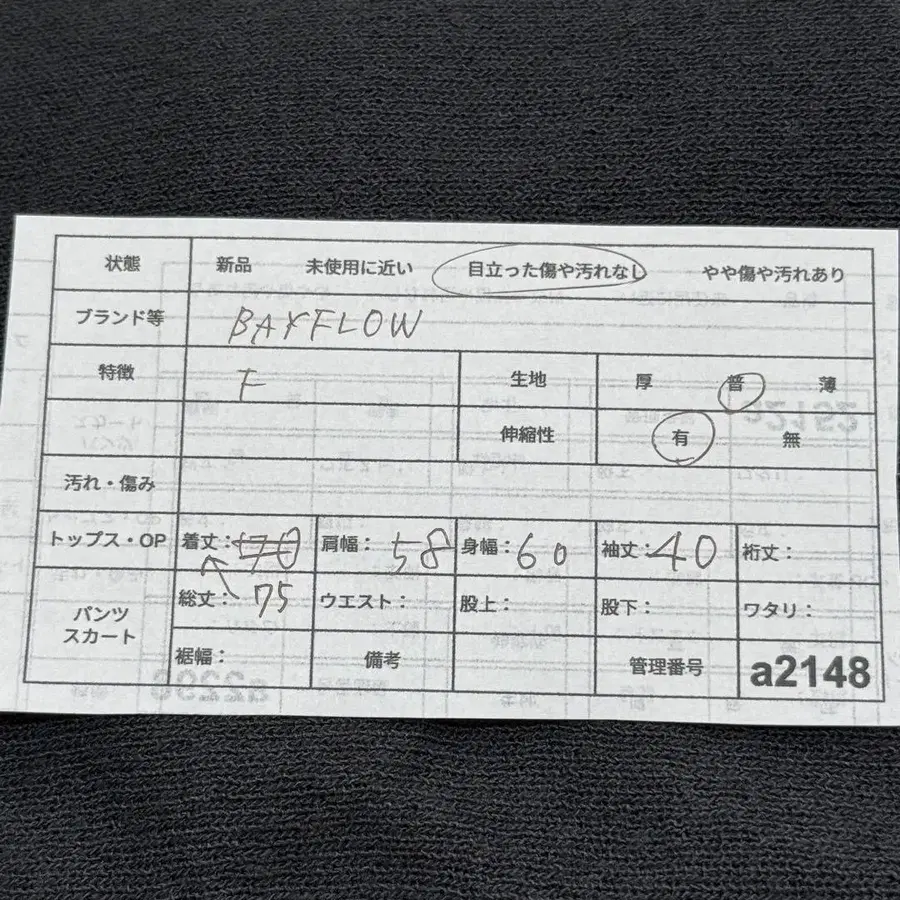 状態 新品 未使用に近い 目立った傷や汚れなし やや傷や汚れあり
ブランド等 BAYFLOW
特徴 F 生地 厚 普 薄
伸縮性 有 無
汚れ・傷み
トップス・OP 着丈: 70 肩幅: 58 身幅: 60 袖丈: 40 裄丈:
パンツ スカート 総丈: 75 ウエスト: 股上: 股下: ワタリ:
裾幅: 備考 管理番号 a2148